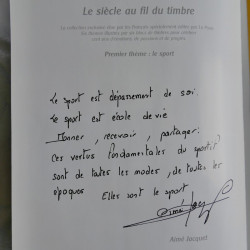 Le siècle au fil du timbre
Premier thème : le sport
Le sport est dépassement de soi.
Le sport est école de vie
Donner, recevoir, partager.
Ces vertus fondamentales du sportif
sont de toutes les modes, de toutes les
époques
Elles sont le sport
Aimé Jacquet